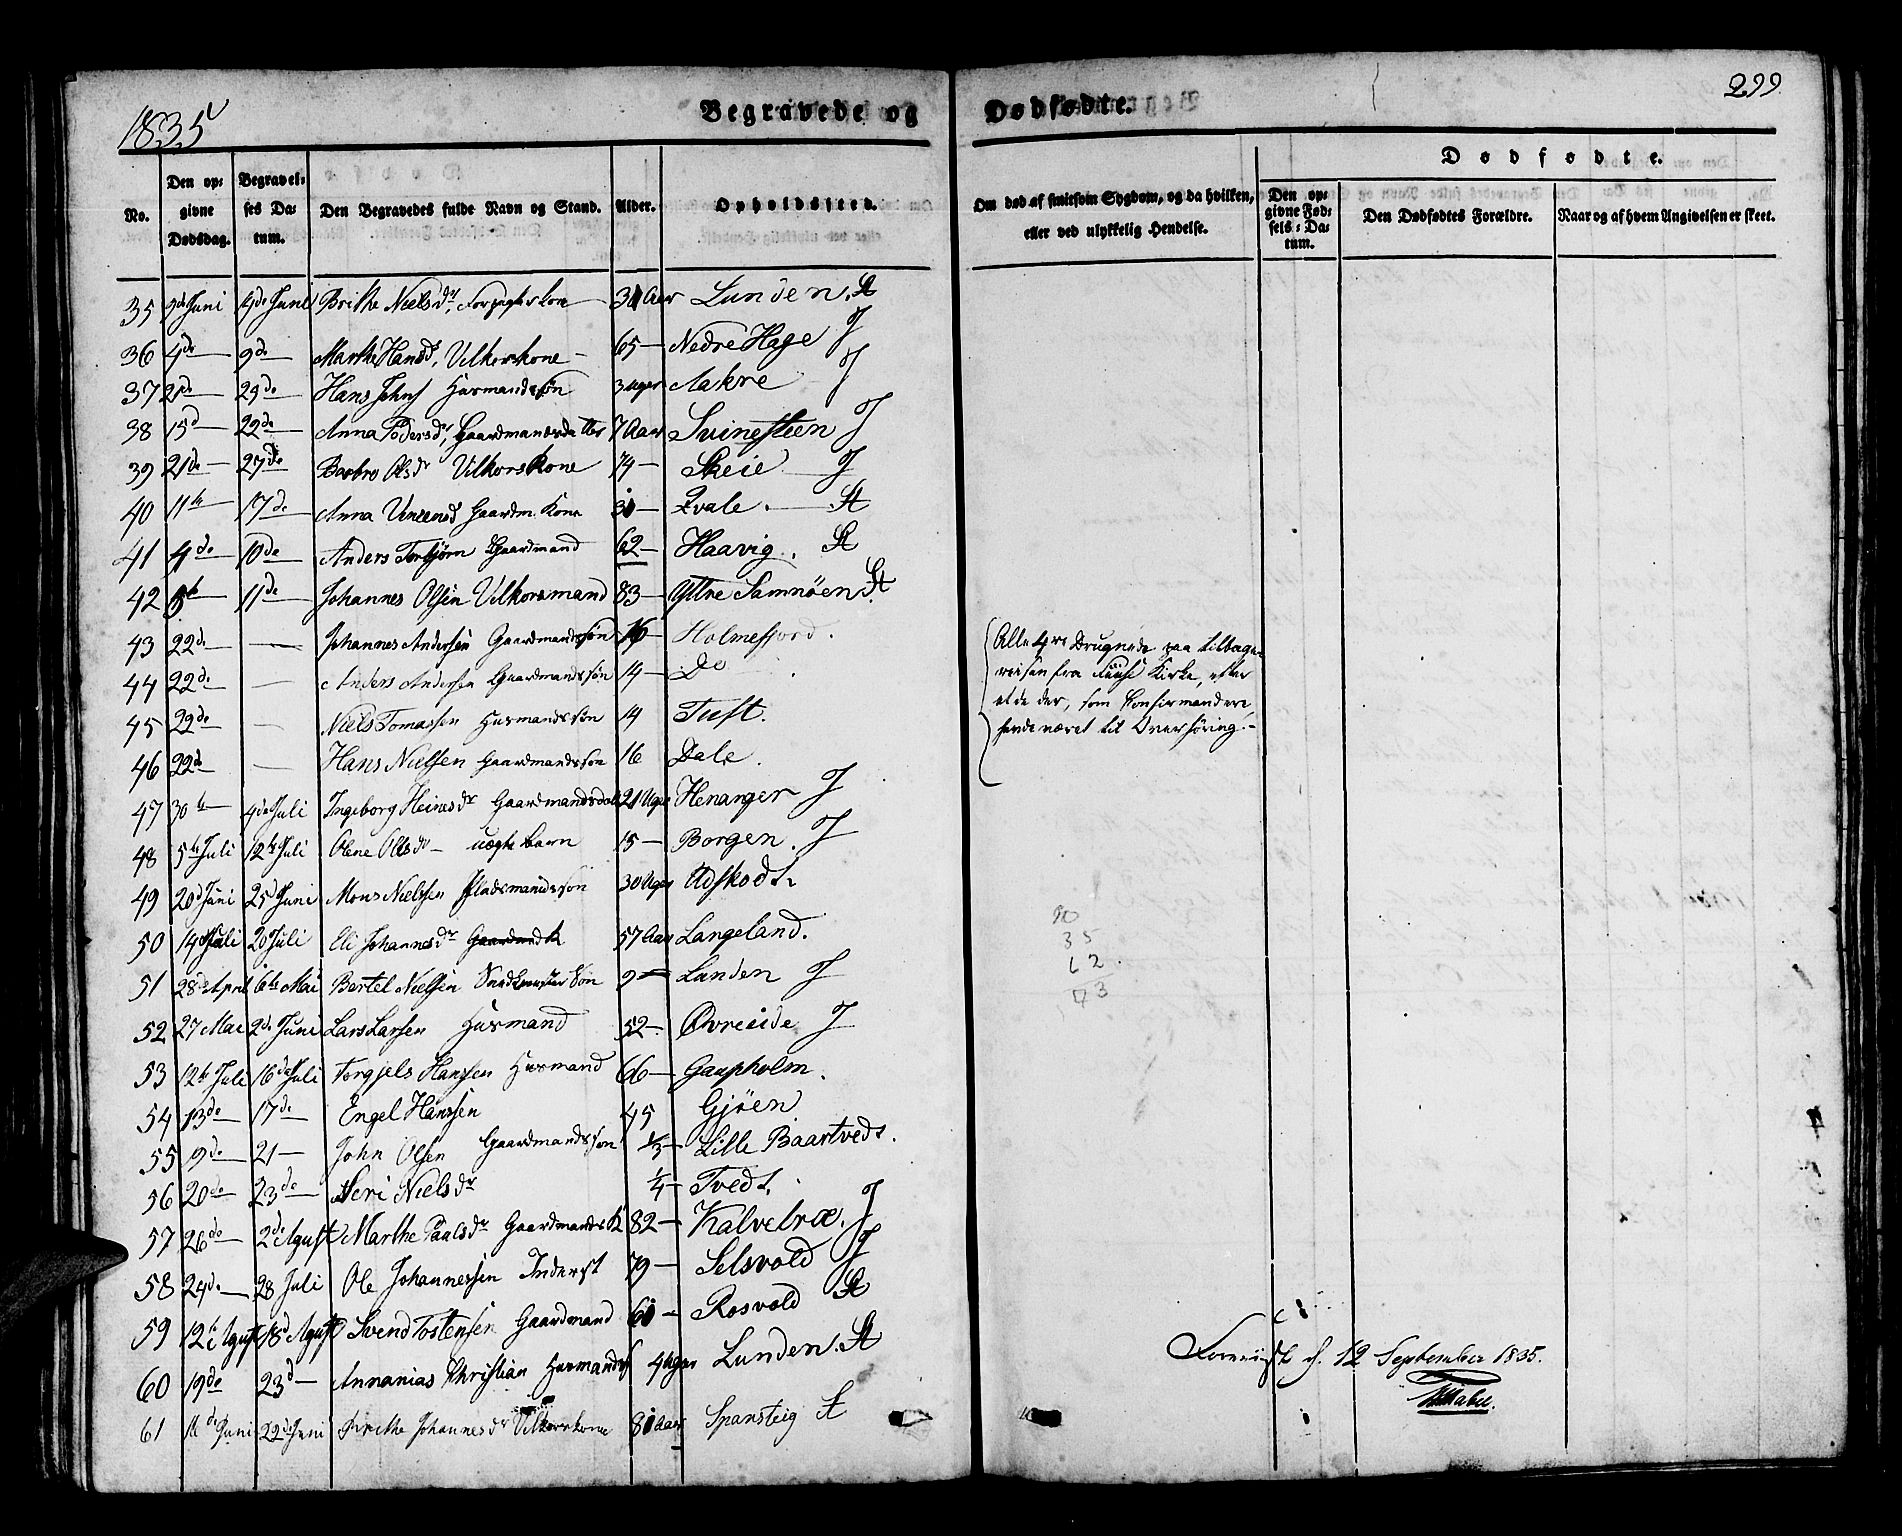 1835
Begravede og Dødfødte.
299.
No.
Den opgivne Dødsdag.
Begravelses Datum.
Den Begravedes fulde Navn og Stand.
Alder.
Opholdssted.
Om død af smitsom Sygdom, og da hvilken, eller ved ulykkelig Hendelse.
Dødfødte.
Den opgivne Fødsels-Datum.
Den Dødfødtes Forældre.
Naar og af hvem Angivelsen er skeet.
35 Juni 4de Juni Brithe Nielsdr, Kone Aar Lunden. St
36 4de 9de Marthe Hansd, Vilkorskone 65 Nedre Hage J
37 29de Hans Johns Husmandssøn 3 Uger Aakre J
38 15d 22de Anna Pedersdr, Gaardmandsdatter 7 Aar Svinesteen J
39 21de 27de Barbro Olsdr Vilkorskone 74 Skeie J
40 11te 17de Anna Gaardm. Kone Qvale. St
41 4de 10de Anders Torbjørn Gaardmand 62 Haavig. St
42 5te 11de Johannes Olsen Vilkorsmand 83 Yttre Samnøen St
43 22de Johannes Andersen Gaardmandssøn 16 Holmefjord.
44 22de Anders Andersen Gaardmandssøn 14 Do
45 22de Niels Tomassen Husmandssøn 14 Tuft.
46 22de Hans Nielsen Gaardmandssøn 16 Dale.
Alle 4re Drugnede paa tilbage-
reisen fra Fuuse Kirke, efter
at de der, som Confirmandere,
havde været til Overhøring.
47 30te 4de Juli Ingeborg Heinesdr 21 Uger Henanger J
48 5te Juli 12te Juli Olene Olsdr uægte Barn 15 Borgen. J
49 20d Juni 25d Juni Mons Nielssen Pladsmandssøn 30 Uger Udskodt.
50 14de Juli 20 Juli Eli Johannesdr 57 Aar Langeland.
51 28de April 6te Mai Bertel Nielsen Søn 9 Lunden J
52 27 Mai 2de Juni Lars Larsen Husmand 52 Øvreeide J
53 12te Juli 16de Juli Torgjels Hanssen Husmand 66 Gaupholm.
54 13de 17de Engel Hanssen 45 Gjøen
55 19de 21 John Olsen Gaardmandssøn 1/3 Lille Baartvedt.
56 20de 23de Seri Nielsdr 1/4 Tvedt.
57 26de 2de Agust Marthe Paalsdr Gaardmandsk 82 Kalvetræ. J
58 24de 28 Juli Ole Johannessen Inderst 79 Selsvold J
59 12te Agust 18d Agust Svend Tostensen Gaardmand Rosvold St
60 19de 23d Annanias Christian Husmands 4 Uger Lunden. St
61 Juni 22de Juni Brithe Johannesdr Vilkorskone Aar Spansteig St
90
35
62
September 1835.